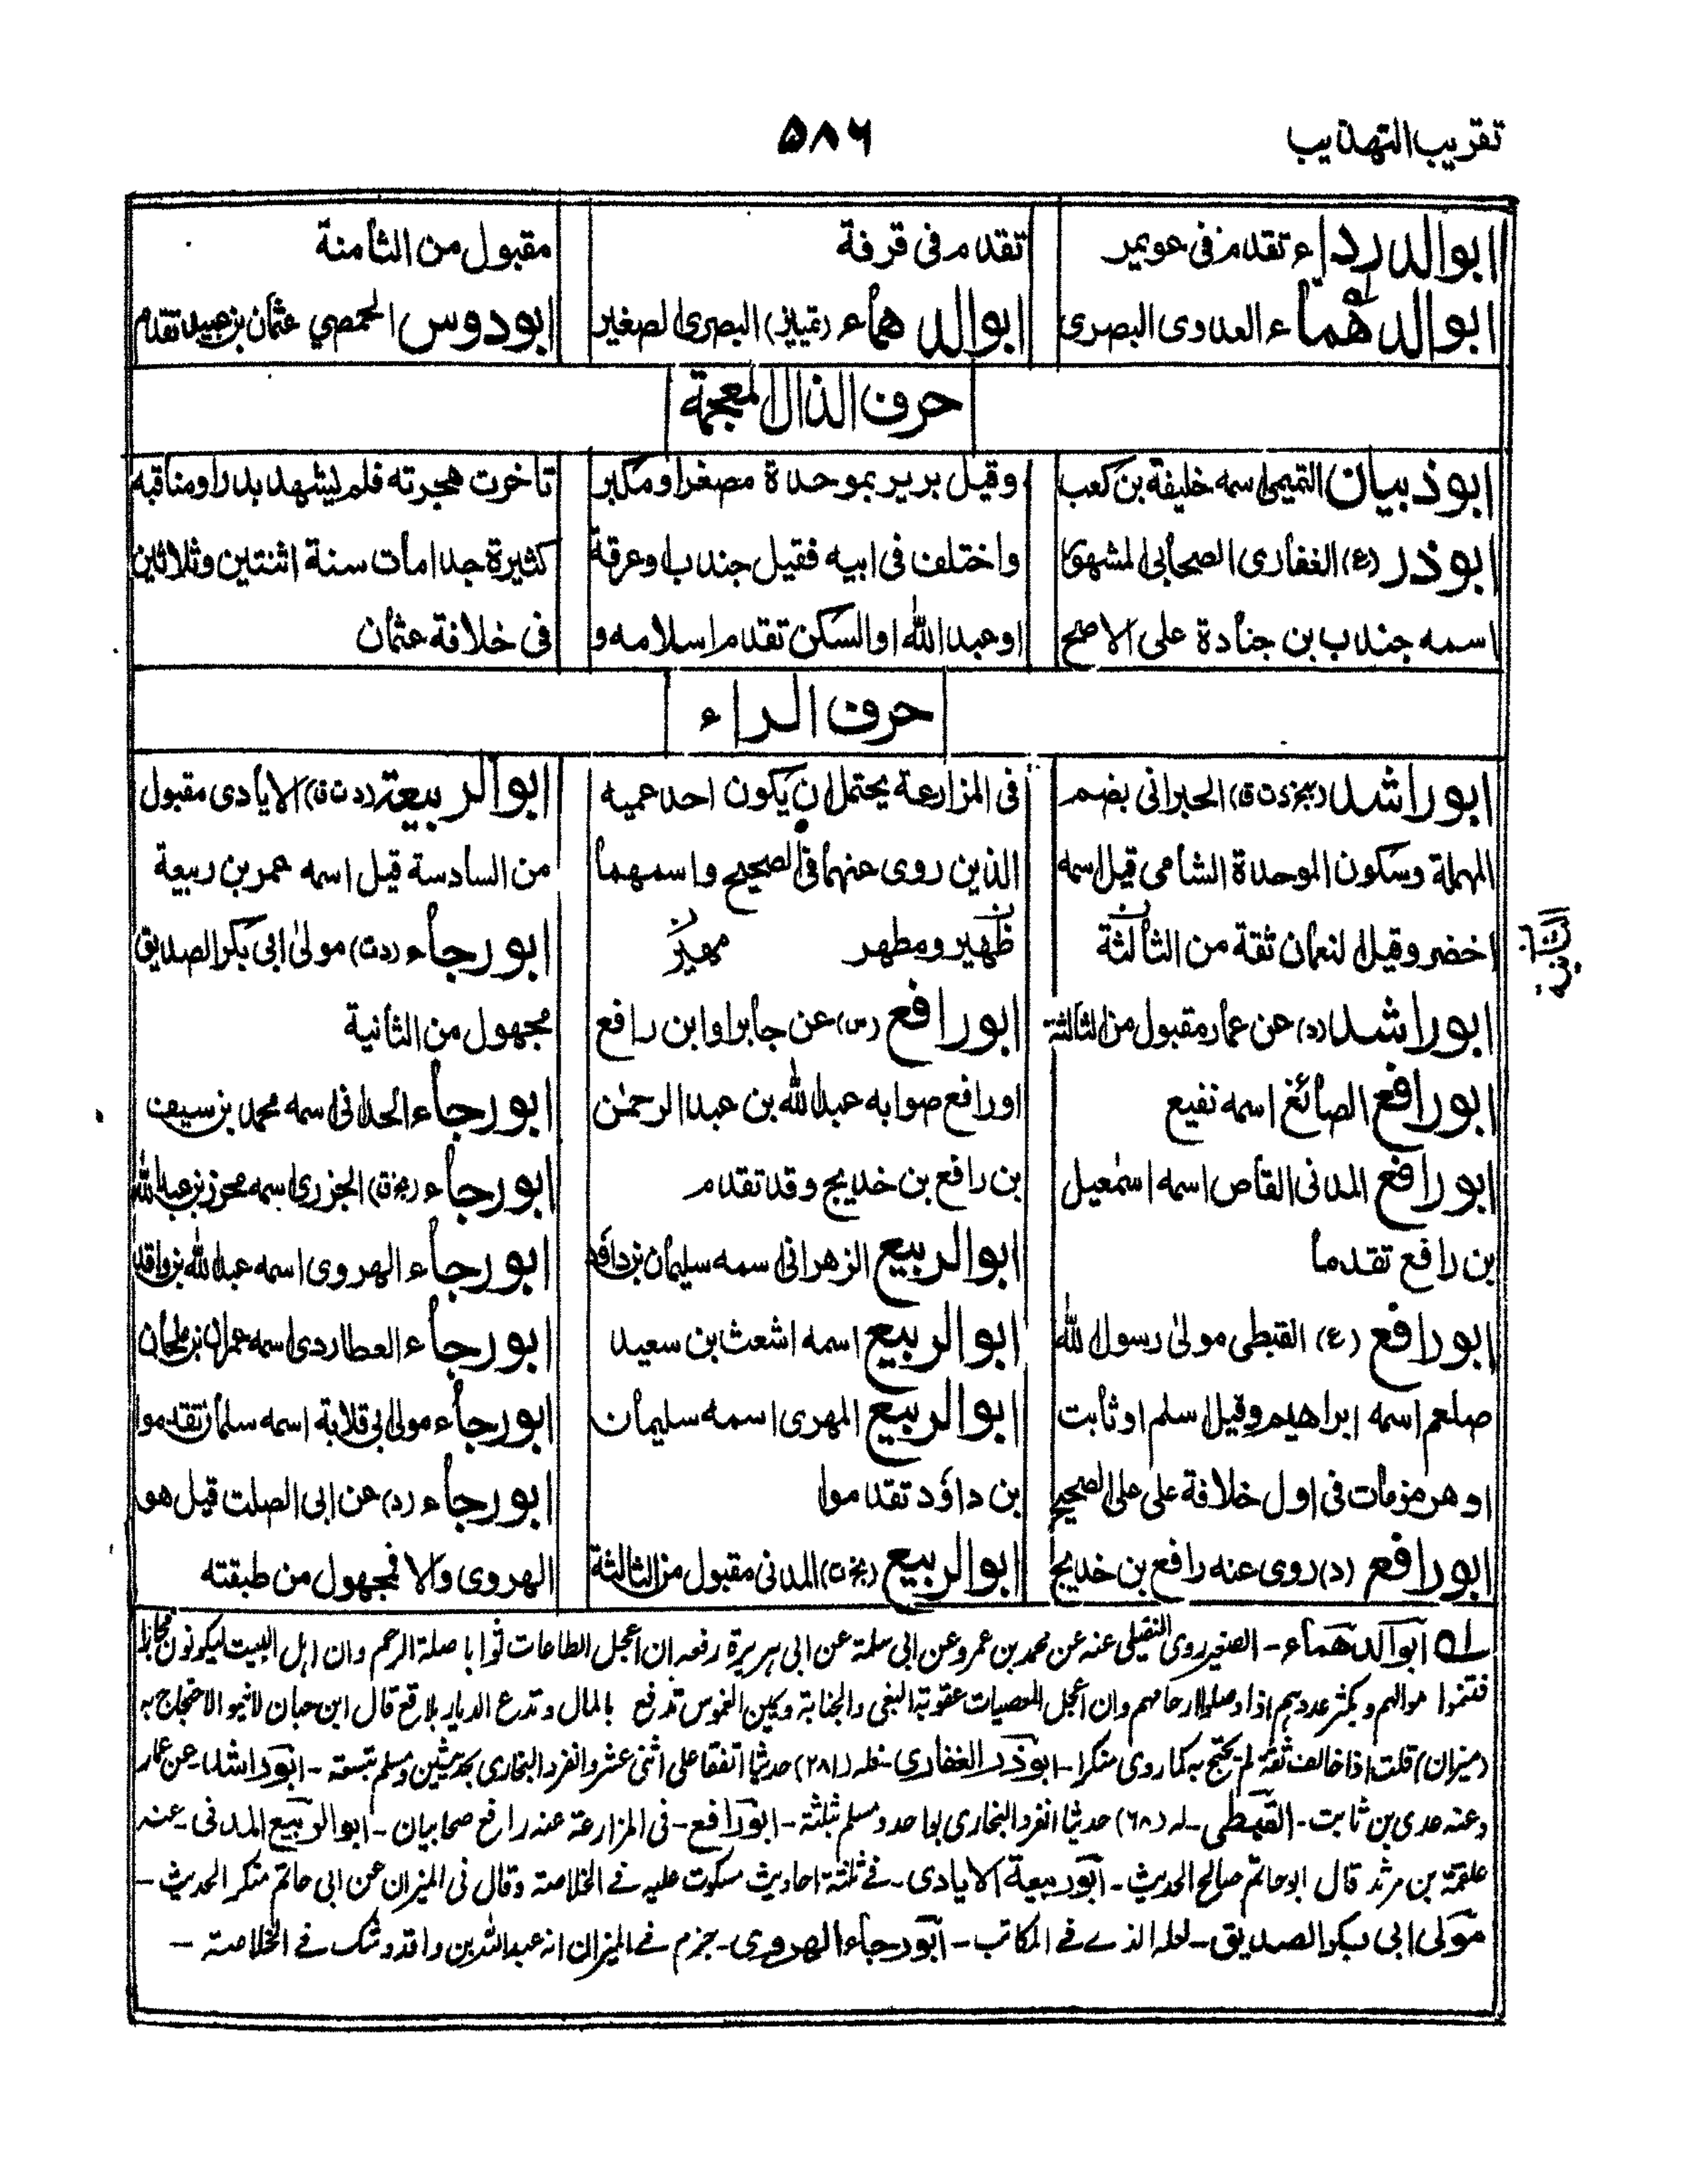 تقريب التهذيب
۵۸۶
ابوالدرداء تقدم فى عويمر
ابوالدهماء العدوى البصرى
تقدم فى قرفة
ابوالدهماء (تمييز) البصرى الصغير
مقبول من الثامنة
ابودوس الحمصي عثمان بن عبيد تقدم
حرف الذال المعجمة
ابوذبيان التميمى اسمه خليفة بن كعب
ابوذر (ع) الغفارى الصحابى المشهور
اسمه جندب بن جنادة على الاصح
وقيل برير بموحدة مصغرا ومكبر
واختلف فى ابيه فقيل جندب او عرقة
او عبدالله او السكن تقدم اسلامه و
تاخرت هجرته فلم يشهد بدرا ومناقبه
كثيرة جدا مات سنة اثنتين وثلاثين
فى خلافة عثمان
حرف الراء
ابوراشد (بخ د ت ق) الحبرانى بضم
المهملة وسكون الموحدة الشامى قيل اسمه
اخضر وقيل النعمان ثقة من الثالثة
ابوراشد (د) عن عمار مقبول من الثالثة
ابورافع الصائغ اسمه نفيع
ابورافع المدنى القاص اسمه اسمعيل
بن رافع تقدما
ابورافع (ع) القبطى مولى رسول الله
صلعم اسمه ابراهيم وقيل اسلم او ثابت
او هرمز مات فى اول خلافة على على الصحيح
ابورافع (د) روى عنه رافع بن خديج
فى المزارعة يحتمل ان يكون احد عميه
الذين روى عنهما فى الصحيح واسمهما
ظهير ومطهر مهير
ابورافع (س) عن جابر او ابن رافع
او رافع صوابه عبدالله بن عبدالرحمن
بن رافع بن خديج وقد تقدم
ابوالربيع الزهرانى اسمه سليمان بن داؤد
ابوالربيع اسمه اشعث بن سعيد
ابوالربيع المهرى اسمه سليمان
بن داؤد تقدموا
ابوالربيع (بخ ت) المدنى مقبول من الثالثة
ابوالربيعة (د ت ق) الايادى مقبول
من السادسة قيل اسمه عمر بن ربيعة
ابورجاء (د ت) مولى ابى بكر الصديق
مجهول من الثانية
ابورجاء الحدانى اسمه محمد بن سيف
ابورجاء (بخ ق) الجزرى اسمه محرز بن عبدالله
ابورجاء الهروى اسمه عبدالله بن واقد
ابورجاء العطاردى اسمه عمران بن ملحان
ابورجاء مولى ابى قلابة اسمه سلمان تقدموا
ابورجاء (د) عن ابى الصلت قيل هو
الهروى والا فمجهول من طبقته
الثانية
له ابوالدهماء - الصغير روى النفيلى عنه عن محمد بن عمرو عن ابى سلمة عن ابى هريرة رفعه ان اعجل الطاعات ثوابا صلة الرحم وان اهل البيت ليكونون فجارا
فتنموا اموالهم ويكثر عددهم اذا وصلوا ارحامهم وان اعجل المعصيات عقوبة البغى والخيانة ويمين الغموس تذهب بالمال وتدع الديار بلاقع قال ابن حبان لا يجوز الاحتجاج به
(ميزان) قلت اذا خالف ثقة لم يحتج به كما روى منكرا - ابوذر الغفارى - له (۲۸۱) حديثا اتفقا على اثنى عشر وانفرد البخارى بحديثين ومسلم بتسعة - ابوراشد - عن عمار
وعنه عدى بن ثابت - القبطى - له (۶۸) حديثا انفرد البخارى بواحد ومسلم ثلثة - ابورافع - فى المزارعة عنه رافع صحابيان - ابوالربيع المدنى - عنه
علقمة بن مرثد قال ابوحاتم صالح الحديث - ابوربيعة الايادى - فى ثلثة احاديث مسكوت عليه فى الخلاصة وقال فى الميزان عن ابى حاتم منكر الحديث -
مولى ابى بكر الصديق - لعله الذى فى المكاتب - ابورجاء الهروى - جزم فى الميزان انه عبدالله بن واقد وشك فى الخلاصة -